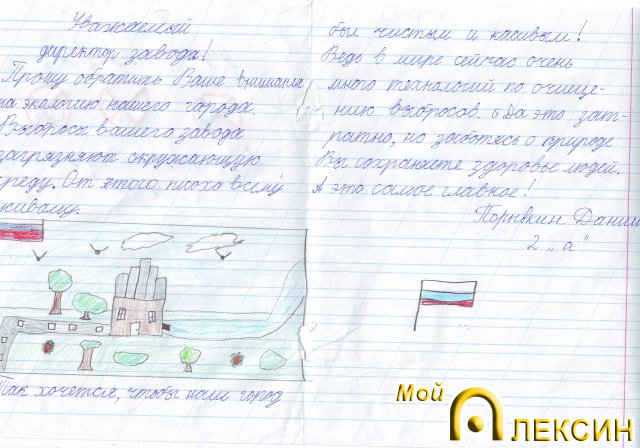 Уважаемый
директор завода!
Прошу обратить Ваше внимание
на экалогию нашего города.
Выбросы вашего завода
загрязняют окружающую
среду. От этого плохо всему
живому.
Так хочется, чтобы наш город
был чистым и касивым!
Ведь в мире сейчас очень
много технологий по очище-
нию выбросов. Да это зат-
ратно, но заботясь о природе
Вы сохраняете здоровье людей.
А это самое главное!
Порывкин Данил
2 „а"
Мой
Алексин